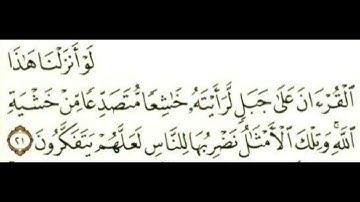 لَوْ أَنزَلْنَا هَٰذَا
ٱلْقُرْءَانَ عَلَىٰ جَبَلٍ لَّرَأَيْتَهُۥ خَٰشِعًا مُّتَصَدِّعًا مِّنْ خَشْيَةِ
ٱللَّهِ ۚ وَتِلْكَ ٱلْأَمْثَٰلُ نَضْرِبُهَا لِلنَّاسِ لَعَلَّهُمْ يَتَفَكَّرُونَ ٢١